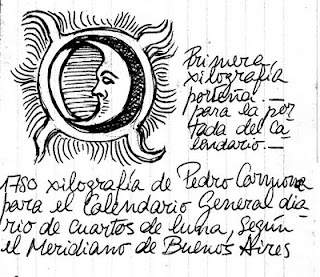 Primera
xilografía
porteña.—
para la por
tada del Ca
lendario.—
1780 xilografía de Pedro Carmona
para el Calendario General dia
rio de Cuartos de luna, según
el Meridiano de Buenos Aires